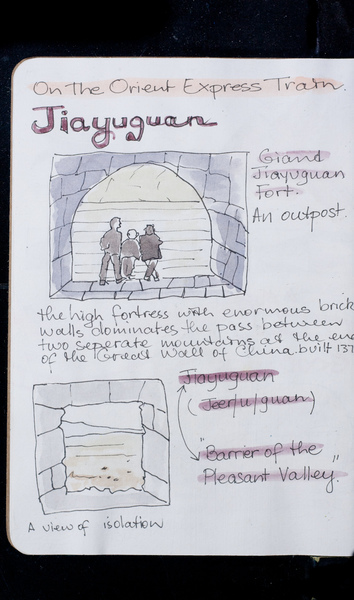 On The Orient Express Train.
Jiayuguan
Giand
Jiayuguan
Fort.
An outpost.
the high fortress with enormous brick
walls dominates the pass between
two seperate mountains at the end
of the Great Wall of China. built 137
Jiayuguan
(Jeer/u/guan)
"Barrier of the
Pleasant Valley."
A view of isolation